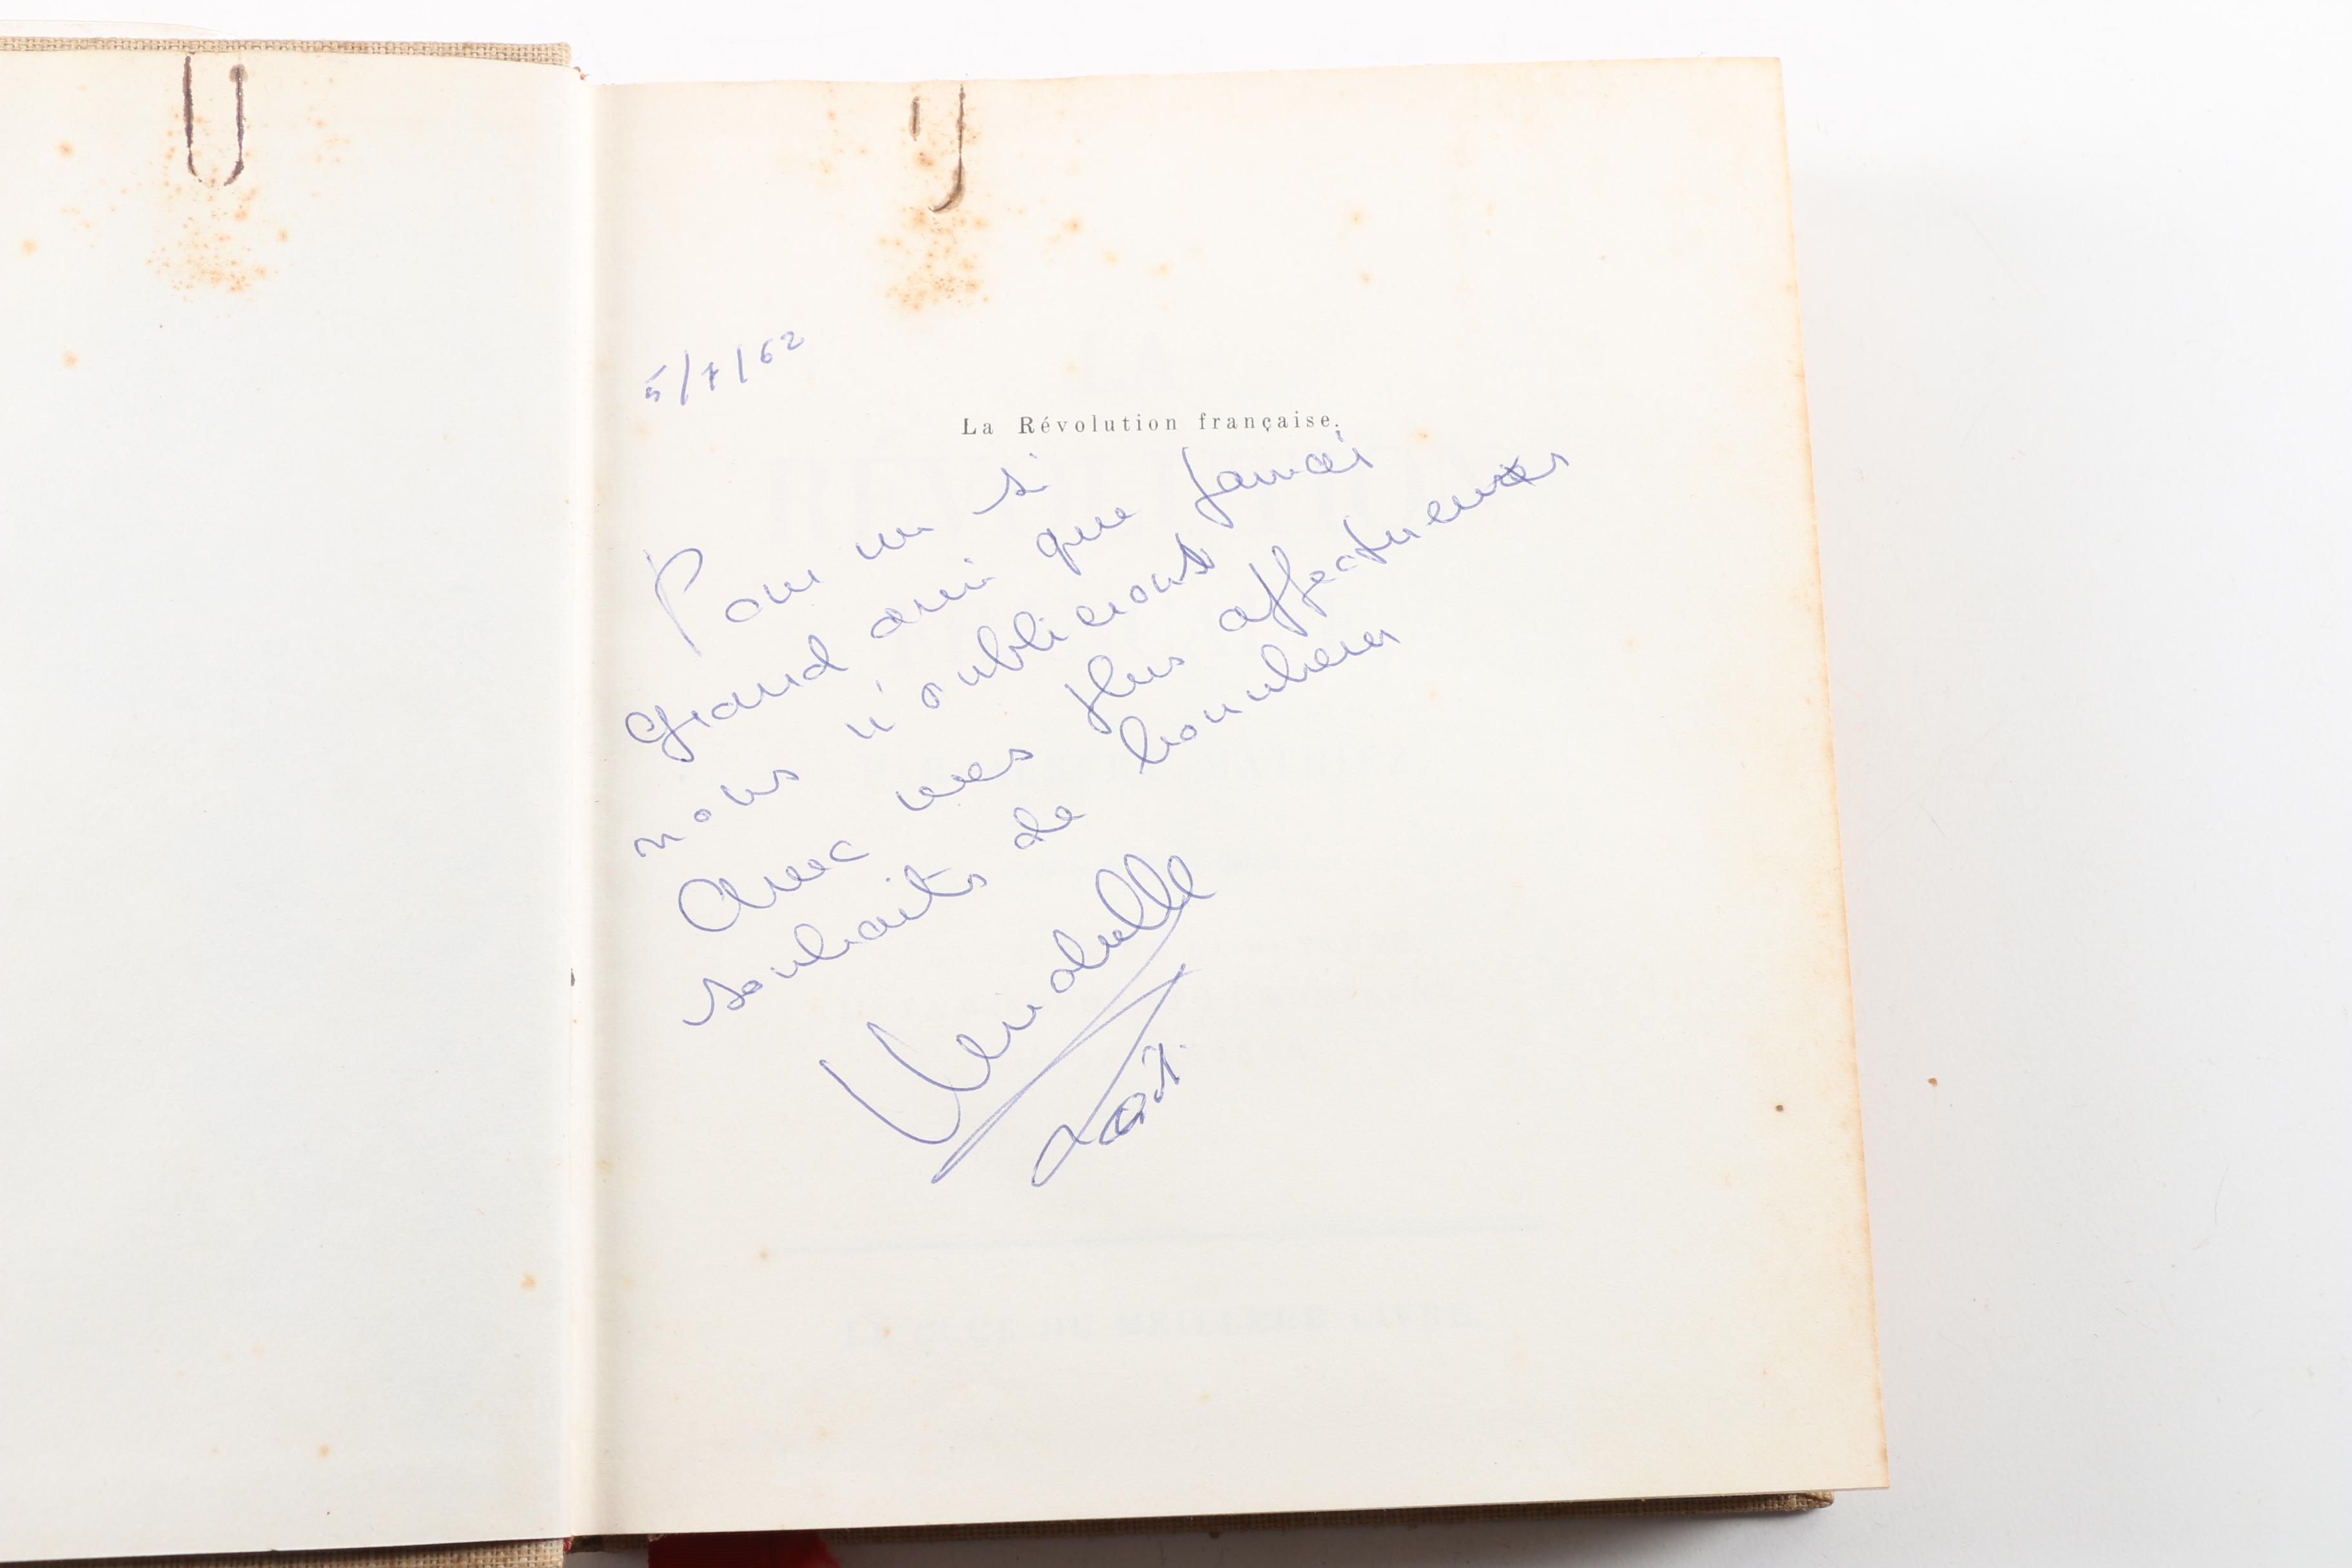 5/7/62
La Révolution française.
Pour un si
grand ami que jamais
nous n'oublierons
Avec mes plus affectueux
souhaits de bonheur